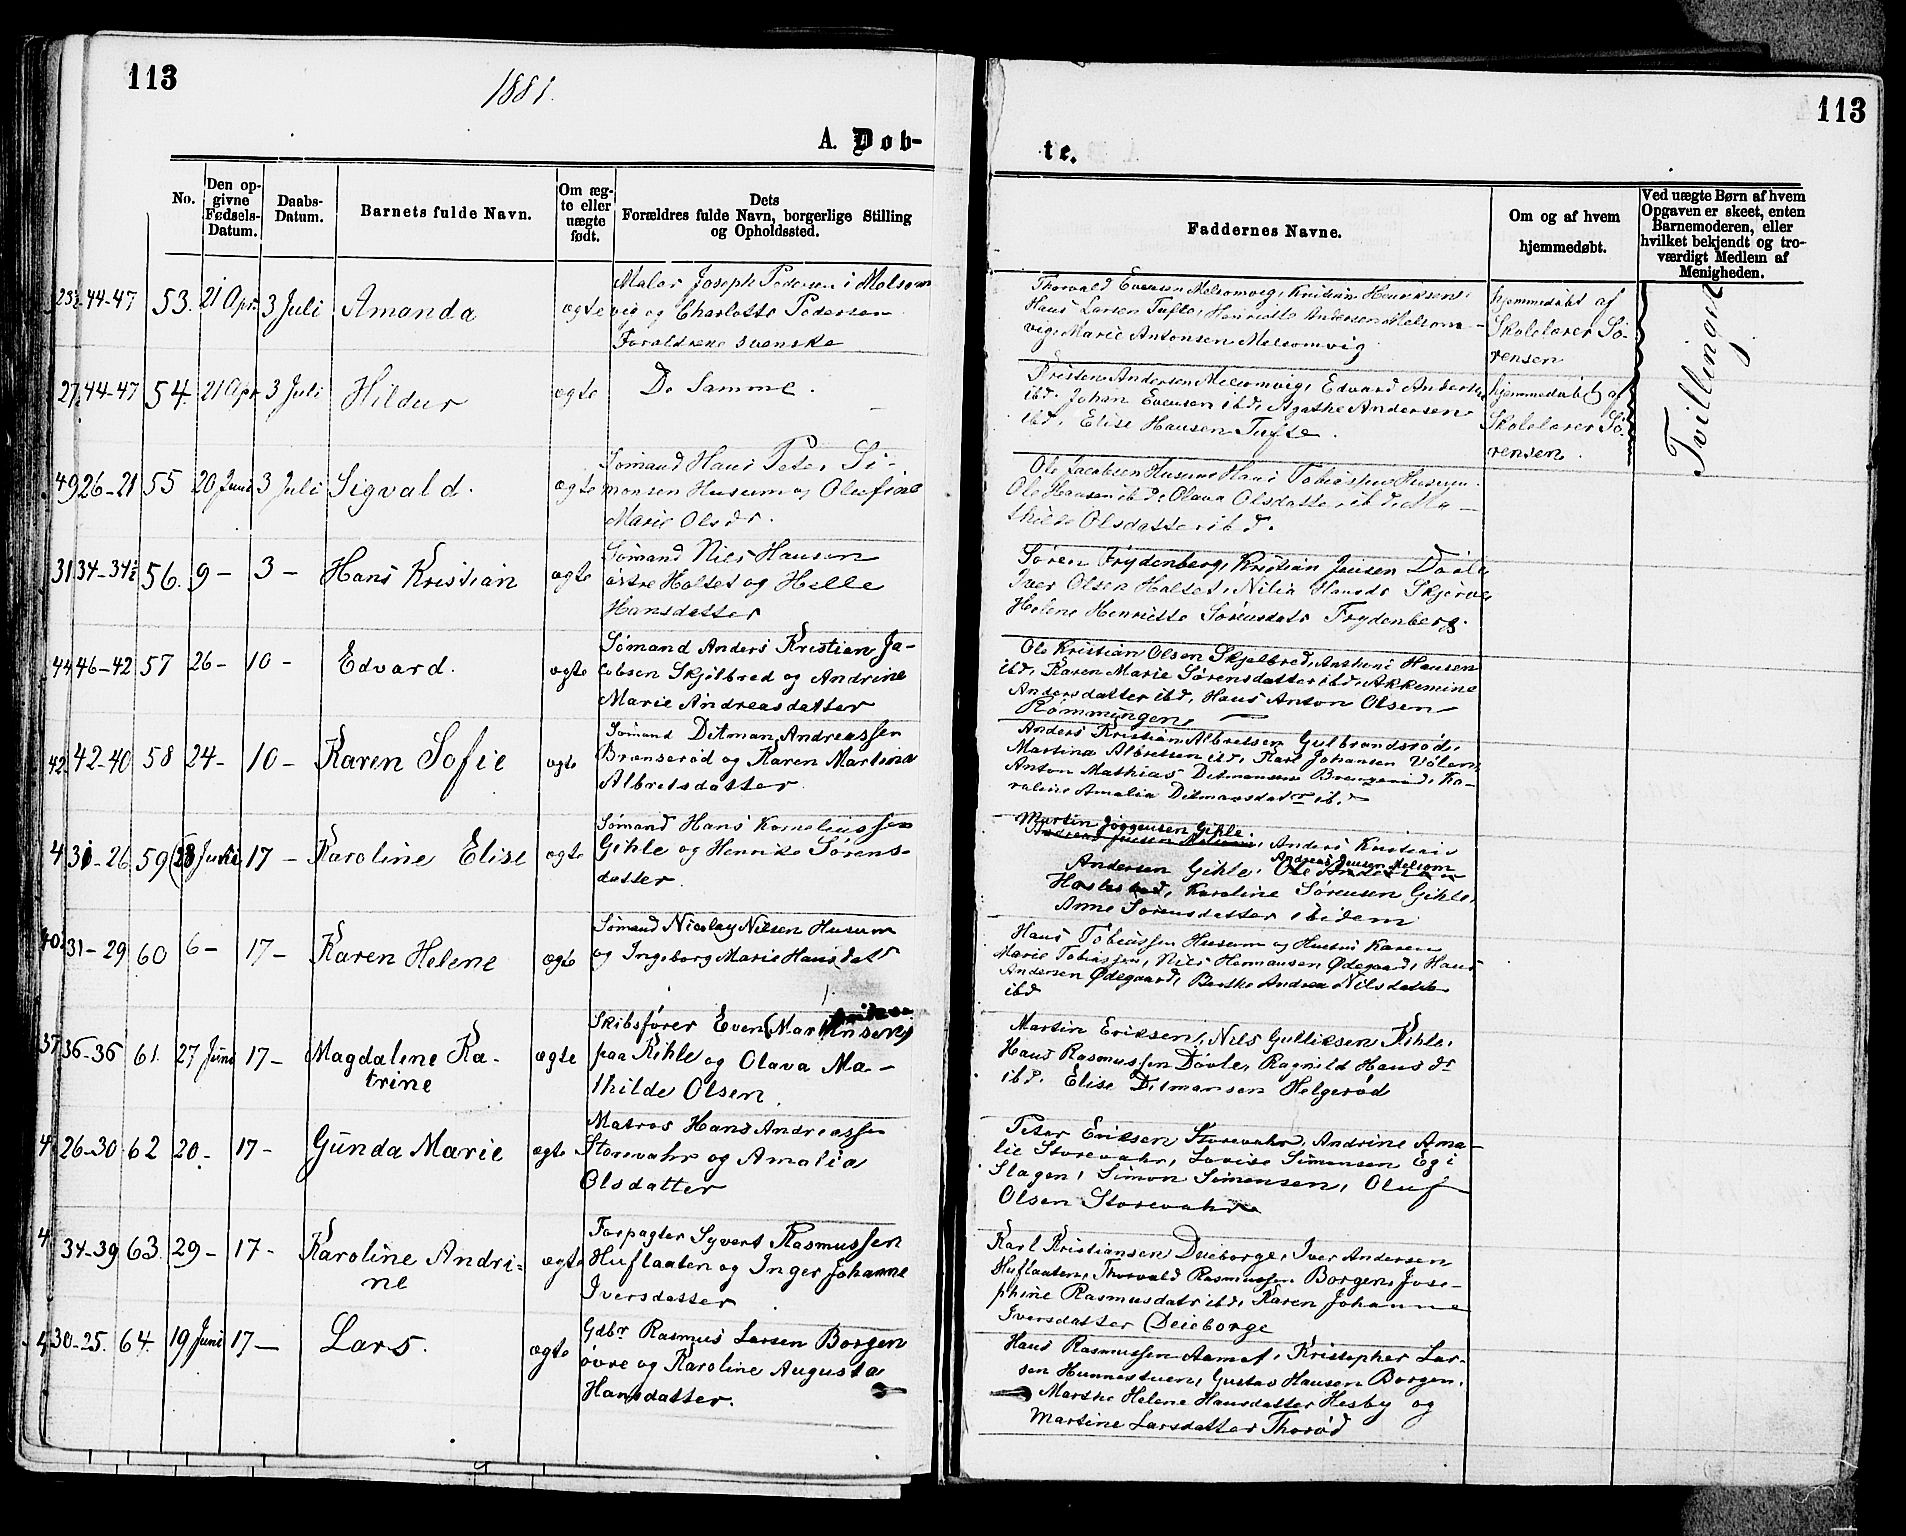 113
1881.
A. Døb-
No.
Den op-
givne
Fødsels-
Datum.
Daabs-
Datum.
Barnets fulde Navn.
Om æg-
te eller
uægte
født.
Dets
Forældres fulde Navn, borgerlige Stilling
og Opholdssted.
44-47 53. 21 Apr. 3 Juli Amanda ægte
Maler Joseph Pedersen i Melsom
vig og Charlotte Pedersen
Forældrene svenske
27. 44-47 54. 21 Apr 3 Juli Hildur ægte
De Samme.
49 26-21 55 20 Juni 3 Juli Sigvald. ægte
Sømand Hans Peter Si-
monsen Husum og Olufine
Marie Olsdr.
31 34-34½ 56. 9- 3- Hans Kristian ægte
Sømand Nils Hansen
østre Holtet og Helle
Hansdatter
44 46-42 57 26- 10- Edvard. ægte
Sømand Anders Kristian Ja-
cobsen Skjølbred og Andrine
Marie Andreasdatter
42 42-40 58 24- 10- Karen Sofie ægte
Sømand Ditman Andreassen
Brønserød og Karen Martina
Albretsdatter
4 31-26 59 17- Karoline Elise ægte
Sømand Hans Korneliussen
Gihle og Henrike Sørens-
datter.
40 31-29 60 6- 17- Karen Helene ægte
Sømand Nicolay Nilsen Husum
og Ingeborg Marie Hansdatr
37 36-36 61. 27 Juni 17- Magdalene Ka-
trine ægte
Skibsfører Even (Martinsen)
paa Kihle og Olava Ma-
thilde Olsen.
4 26-30 62 20- 17- Gunda Marie ægte
Matros Hans Andreassen
Storevahr og Amalia
Olsdatter
4 34-39 63. 29- 17- Karoline Andri-
ne ægte
Forpagter Syvert Rasmussen
Huflaaten og Inger Johanne
Iversdatter
4 30-25. 64. 19 Juni 17- Lars. ægte
Gdbr Rasmus Larsen Borgen
øvre og Karoline Augusta
Hansdatter.
113
te.
Faddernes Navne.
Om og af hvem
hjemmedøbt.
Ved uægte Børn af hvem
Opgaven er skeet, enten
Barnemoderen, eller
hvilket bekjendt og tro-
værdigt Medlem af
Menigheden.
Thorvald Evensen Melsomvig, Kristian Henriksen,
Hans Larsen Tufte, Henriette Andersen Melsom-
vig, Marie Antonsen Melsomvig
hjemmedøbt af
Skolelærer Sø-
rensen
Tvillinger
Kristen Andersen Melsomvig, Edvard Andersen
ibd. Johan Evensen ibd, Agathe Andersen
ibd, Elise Hansen Tufte.
hjemmedøbt af
Skolelærer Sø-
rensen.
Ole Jacobsen Husum, Hans Tobiassen Husum,
Ole Hansen ibd, Olava Olsdatter ibd, Ma-
thilde Olsdatter ibd.
Søren Frydenberg, Kristian Jensen Døvle
Iver Olsen Holtet, Nilia Hansdr
Helene Henriette Sørensdatr Frydenberg.
Ole Kristian Olsen Skjelbred, Anthoni Hansen
ibd, Karen Marie Sørensdatter ibd, Akkemine
Andersdatter ibd, Hans Anton Olsen
Rømmingen,
Anders Kristian Albretsen Gulbrandsrød,
Martina Albretsen ibd, Karl Johansen Vølen,
Anton Mathias Ditmansen Brønserød, Ka-
roline Amalia Ditmansdatr ib.
Martin Jørgensen Gihle.
Andreas Jensen Melsom, Anders Kristian
Andreas Jensen Melsom
Andersen Gihle, Ole Andersen
Haslestad, Karoline Sørensen Gihle,
Anne Sørensdatter ibidem
Hans Tobiassen Husum og Hustru Karen
Marie Tobiassen, Nils Hermansen Ødegaard, Hans
Andersen Ødegaard, Berthe Andrea Nilsdatter
ibd
Martin Eriksen, Nils Gulliksen Kihle,
Hans Rasmussen Døvle, Ragnild Hansdr
ibd. Elise Ditmansen Helgerød
Peter Eriksen Storevahr, Andrine Ama-
lie Storevahr, Lovise Simonsen Eg i
Slagen, Simon Simonsen, Oluf
Olsen Storevahr
Karl Kristiansen Dueborge, Iver Andersen
Huflaaten, Thorvald Rasmussen Borgen, Jose-
phine Rasmusdatr ibd, Karen Johanne
Iversdatter Dueborge
Hans Rasmussen Aamot, Kristopher Lar-
sen Hunnestuen, Gustav Hansen Borgen,
Marthe Helene Hansdatter Hesby og
Martine Larsdatter Thorød